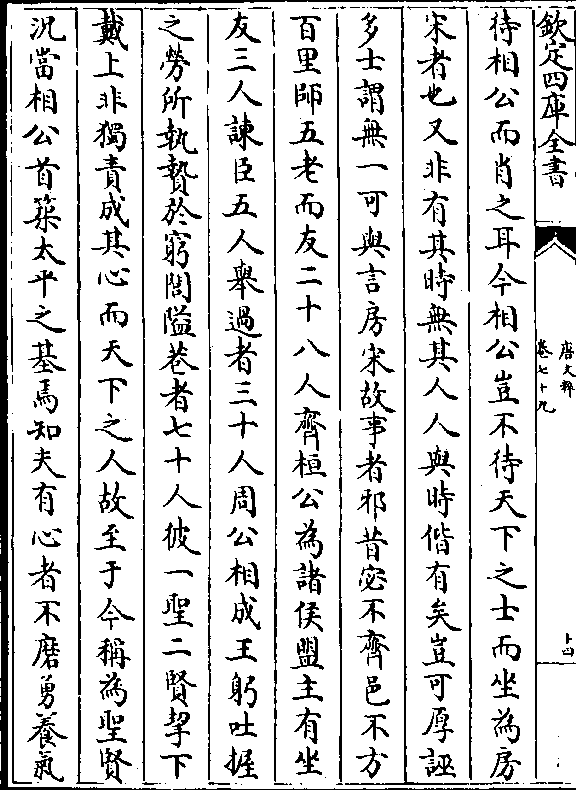 欽定四庫全書
唐文粹
卷七十九
待相公而肖之耳今相公豈不待天下之士而坐為房
宋者也又非有其時無其人人與時偕有矣豈可厚誣
多士謂無一可與言房宋故事者邪昔宓不齊邑不方
百里師五老而友二十八人齊桓公為諸侯盟主有坐
友三人諫臣五人舉過者三十人周公相成王躬吐握
之勞所執贄於窮閻隘巷者七十人彼一聖二賢挈下
戴上非獨責成其心而天下之人故至于今稱為聖賢
況當相公首築太平之基焉知夫有心者不磨勇養氣